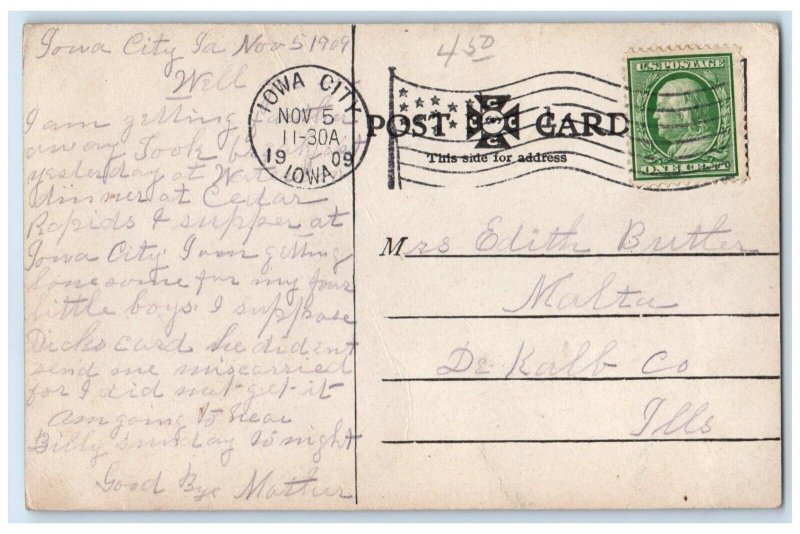 Iowa City Ia Nov 5 1909
Well
I am getting farther
away Took breakfast
yesterday at Wat
dinner at Cedar
Rapids & supper at
Iowa City I am getting
lonesome for my four
little boys I suppose
Dicks card he did ent
send me miscarried
for I did not get it
am going to hear
Billy Sunday to night
Good Bye Mother
450
IOWA CITY,
NOV 5
11-30A
1909
IOWA
POST CARD
This side for address
U.S. POSTAGE
ONE CENT
Mrs Edith Butler
Malta
De Kalb Co
Ills